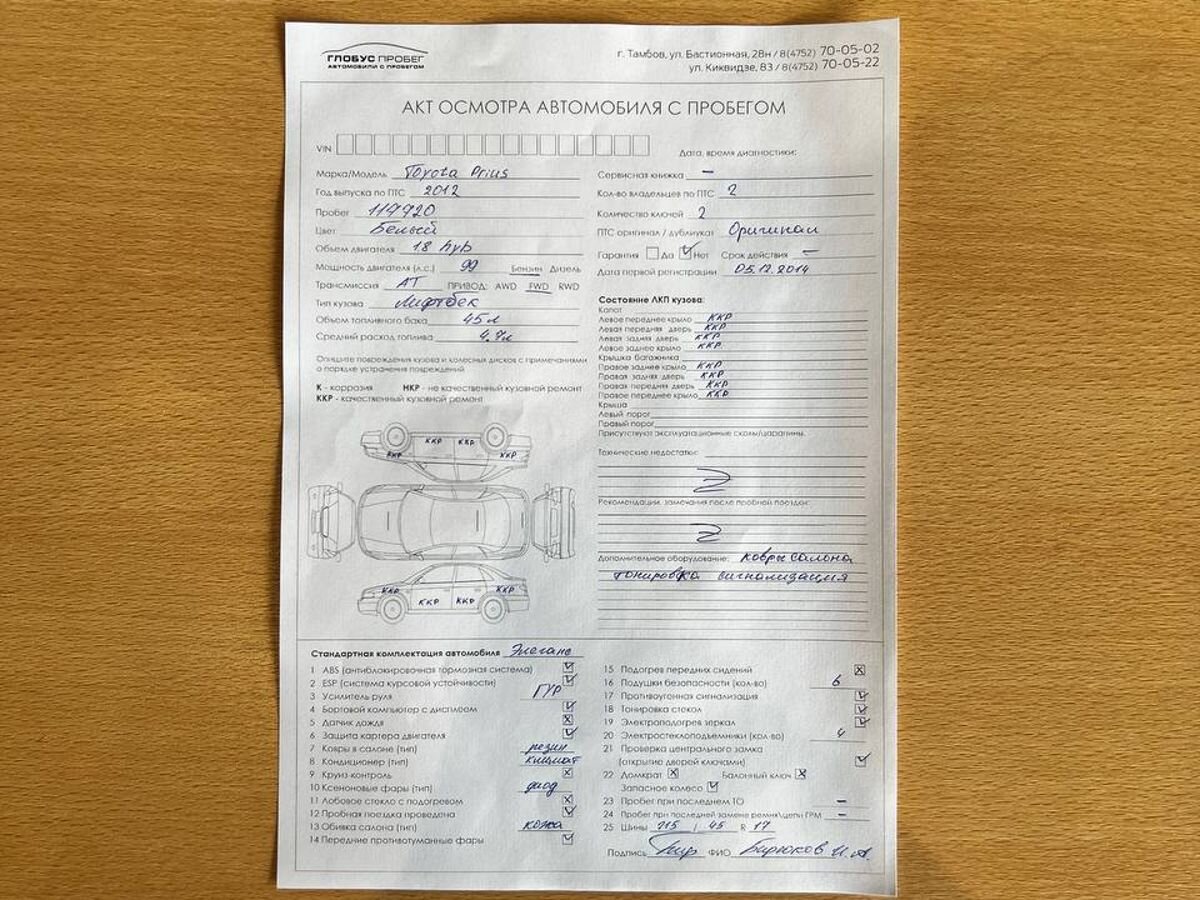 ГЛОБУС ПРОБЕГ
АВТОМОБИЛИ С ПРОБЕГОМ
г. Тамбов, ул. Бастионная, 28н / 8(4752) 70-05-02
ул. Киквидзе, 83 / 8(4752) 70-05-22
АКТ ОСМОТРА АВТОМОБИЛЯ С ПРОБЕГОМ
VIN
Дата, время диагностики:
Марка/Модель Toyota Prius
Год выпуска по ПТС 2012
Пробег 117720
Цвет Белый
Объем двигателя 18 hyb
Мощность двигателя (л.с.) 99 Бензин Дизель
Трансмиссия АТ ПРИВОД: AWD FWD RWD
Тип кузова Лифтбек
Объем топливного бака 45л
Средний расход топлива 4.7л
Опишите повреждения кузова и колесных дисков с примечаниями
о порядке устранения повреждений
К - коррозия НКР - не качественный кузовной ремонт
ККР - качественный кузовной ремонт
ККР ККР
ККР ККР
ККР ККР
ККР ККР
Сервисная книжка —
Кол-во владельцев по ПТС 2
Количество ключей 2
ПТС оригинал / дубликат Оригинал
Гарантия Да Нет Срок действия —
Дата первой регистрации 05.12.2014
Состояние ЛКП кузова:
Капот
Левое переднее крыло ККР
Левая передняя дверь ККР
Левая задняя дверь ККР
Левое заднее крыло ККР
Крышка багажника
Правое заднее крыло ККР
Правая задняя дверь ККР
Правая передняя дверь ККР
Правое переднее крыло ККР
Крыша
Левый порог
Правый порог
Присутствуют эксплуатационные сколы/царапины.
Технические недостатки:
Рекомендации, замечания после пробной поездки:
Дополнительное оборудование: ковры салона
тонировка сигнализация
Стандартная комплектация автомобиля Элеганс
1 ABS (антиблокировочная тормозная система)
2 ESP (система курсовой устойчивости)
3 Усилитель руля ГУР
4 Бортовой компьютер с дисплеем
5 Датчик дождя
6 Защита картера двигателя
7 Ковры в салоне (тип) резин
8 Кондиционер (тип) климат
9 Круиз контроль
10 Ксеноновые фары (тип) диод
11 Лобовое стекло с подогревом
12 Пробная поездка проведена
13 Обивка салона (тип) кожа
14 Передние противотуманные фары
15 Подогрев передних сидений
16 Подушки безопасности (кол-во) 6
17 Противоугонная сигнализация
18 Тонировка стекол
19 Электроподогрев зеркал
20 Электростеклоподъемники (кол-во) 4
21 Проверка центрального замка
(открытие дверей ключами)
22 Домкрат Балонный ключ
Запасное колесо
23 Пробег при последнем ТО —
24 Пробег при последней замене ремня\цепи ГРМ —
25 Шины 215 / 45 R 17
Подпись ФИО Бирюков И.А.